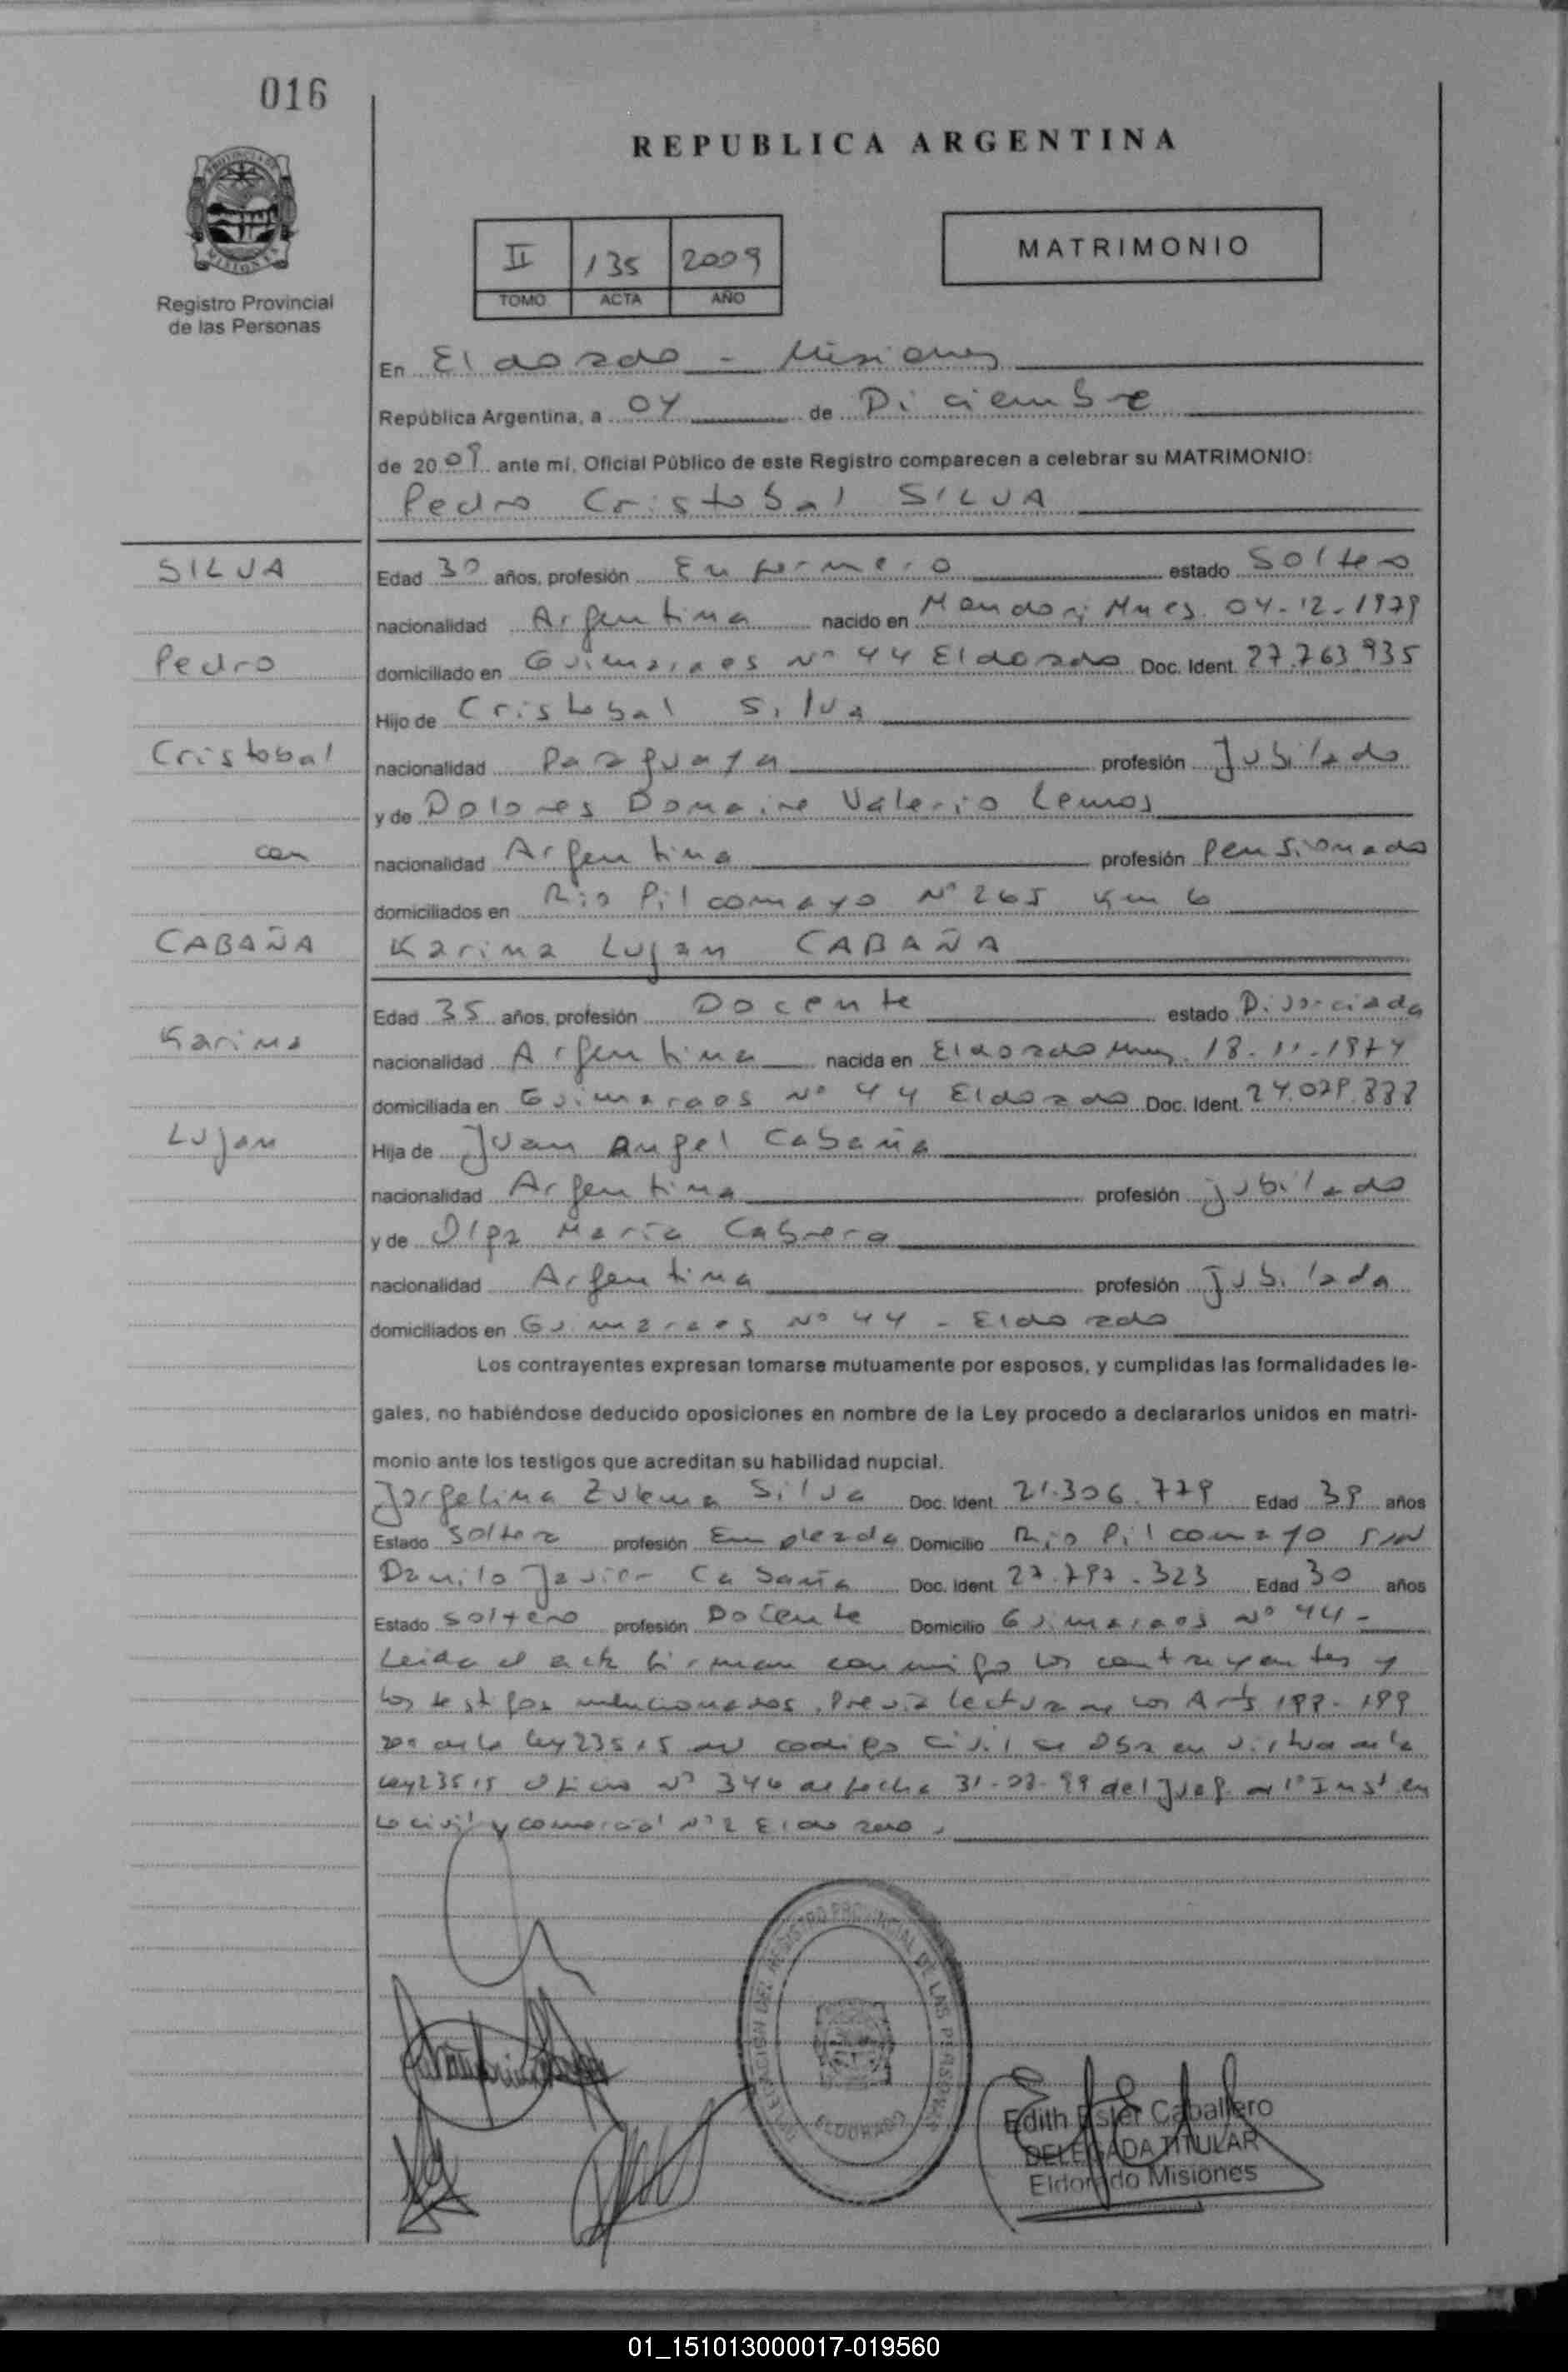 016
REPUBLICA ARGENTINA
PROVINCIA DE
MISIONES
Registro Provincial
de las Personas
II 135 2009
TOMO ACTA AÑO
MATRIMONIO
En Eldorado - Misiones
República Argentina, a 04 de Diciembre
de 2009 ante mi, Oficial Público de este Registro comparecen a celebrar su MATRIMONIO:
Pedro Cristobal SILVA
SILVA
Pedro
Cristobal
con
CABAÑA
Karina
Lujan
Edad 30 años, profesión Enfermero estado Soltero
nacionalidad Argentina nacido en Mnes. 04-12-1979
domiciliado en Guimaraes Nº 44 Eldorado Doc. Ident. 27.763.935
Hijo de Cristobal Silva
nacionalidad Paraguaya profesión Jubilado
y de Dolores Valerio Lemos
nacionalidad Argentina profesión Pensionado
domiciliados en Rio Pilcomayo Nº 265 Km 6
Karina Lujan CABAÑA
Edad 35 años, profesión Docente estado Divorciada
nacionalidad Argentina nacida en Eldorado Mnes. 18-11-1974
domiciliada en Guimaraes Nº 44 Eldorado Doc. Ident.
Hija de Juan Angel Cabaña
nacionalidad Argentina profesión jubilado
y de Olga María Cabrera
nacionalidad Argentina profesión jubilada
domiciliados en Guimaraes Nº 44 - Eldorado
Los contrayentes expresan tomarse mutuamente por esposos, y cumplidas las formalidades le-
gales, no habiéndose deducido oposiciones en nombre de la Ley procedo a declararlos unidos en matri-
monio ante los testigos que acreditan su habilidad nupcial.
Jorgelina Zulema Silva Doc. Ident. 21.306.779 Edad 39 años
Estado Soltera profesión Empleada Domicilio Rio Pilcomayo S/N
Danilo Javier Cabaña Doc. Ident. 27.797.323 Edad 30 años
Estado soltero profesión Docente Domicilio Guimaraes Nº 44-
Leida el acta firman conmigo los contrayentes y
los testigos mencionados. Previa lectura de los Arts 198-199
200 de la ley 23515 del codigo civil se Osa en virtud de la
ley 23515 Oficio Nº 346 de fecha 31-08-99 del Juzg. de 1º Inst en
lo civil y comercial Nº 2 Eldorado.
DELEGACION DEL REGISTRO PROVINCIAL DE LAS PERSONAS
ELDORADO
Edith Ester Caballero
DELEGADA TITULAR
Eldorado Misiones
01_151013000017-019560